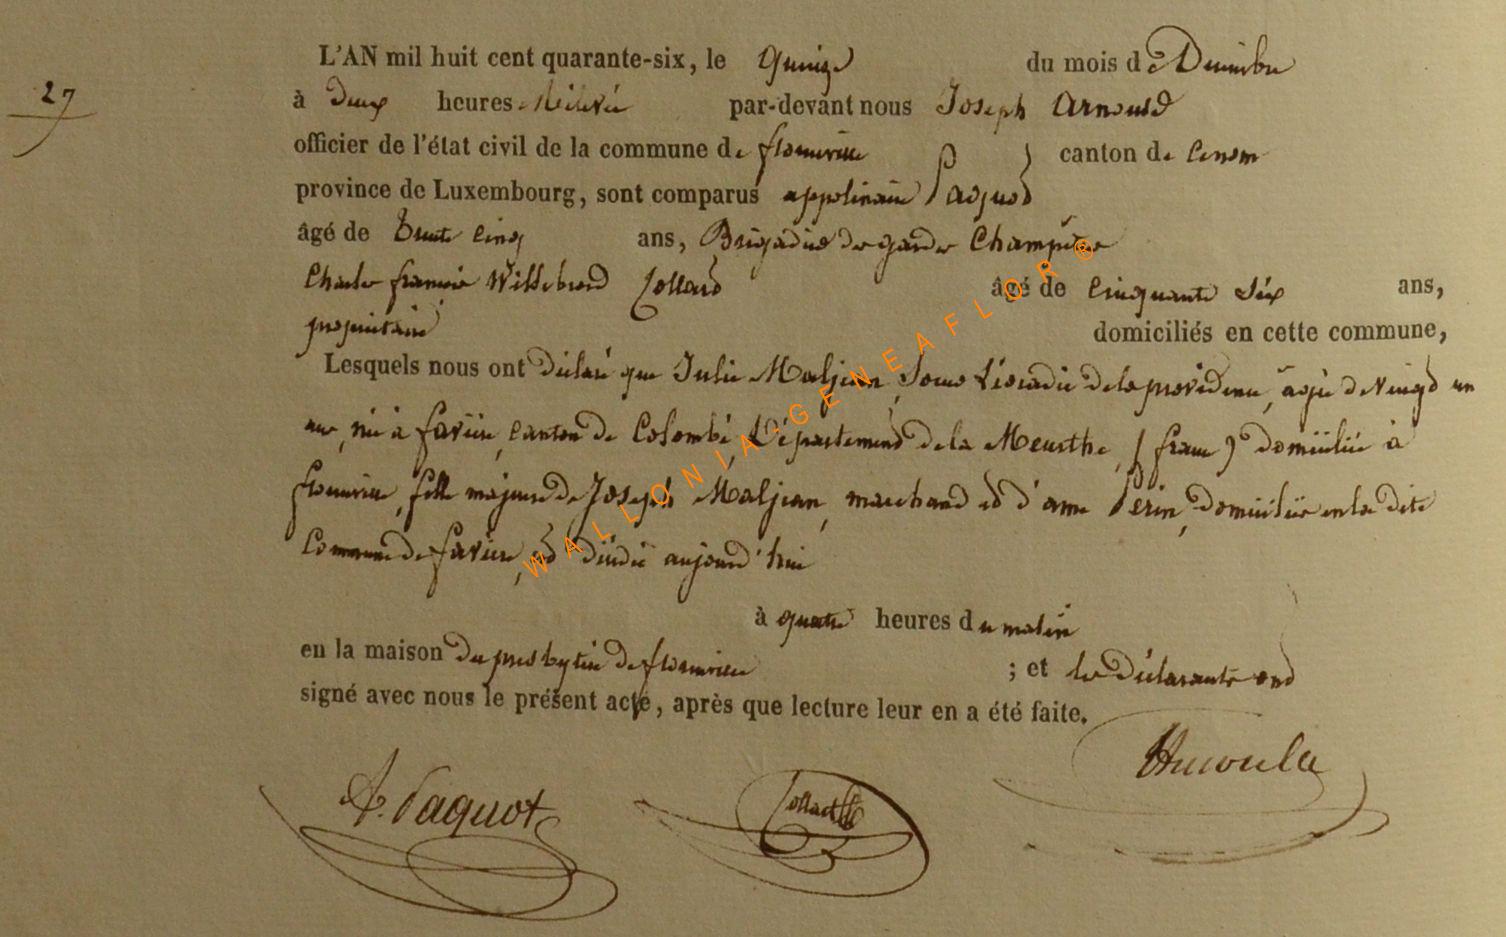 27
L'AN mil huit cent quarante-six, le quinze du mois de Décembre
à deux heures de relevée par-devant nous Joseph Arnould
officier de l'état civil de la commune de florenville canton de
province de Luxembourg, sont comparus appolinaire Paquot
âgé de trente cinq ans, Brigadier des gardes Champêtre
Charles françois Willebrord Collard âgé de cinquante six ans,
propriétaire domiciliés en cette commune,
Lesquels nous ont déclaré que Julie Maljean, Soeur Léocadie de la providence, agée de vingt un
ans, née à favière, canton de Colombé, Département de la Meurthe, (france) domiciliée à
florenville, fille majeure de Joseph Maljean, marchand et d'anne Perin, domiciliés en la dite
Commune de favière, est décédée aujourd'hui
à quatre heures du matin
en la maison du presbytère de florenville ; et les déclarants ont
signé avec nous le présent acte, après que lecture leur en a été faite.
A. Paquot Collard
WALLONIA-GENEAFLOR®